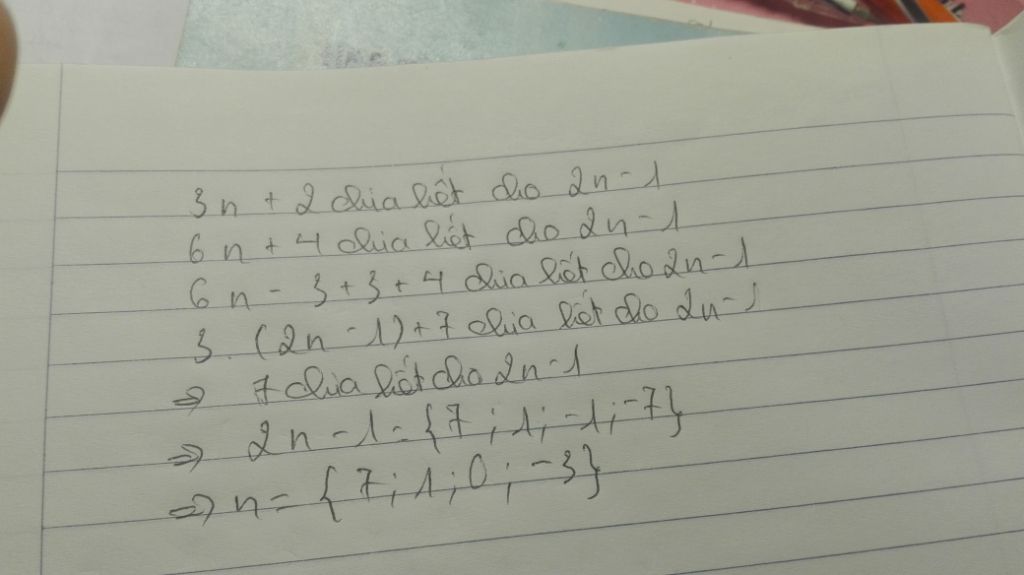 3n + 2 chia hết cho 2n - 1
6n + 4 chia hết cho 2n - 1
6n - 3 + 3 + 4 chia hết cho 2n - 1
3. (2n - 1) + 7 chia hết cho 2n - 1
⇒ 7 chia hết cho 2n - 1
⇒ 2n - 1 = {7; 1; -1; -7}
⇒ n = {7; 1; 0; -3}